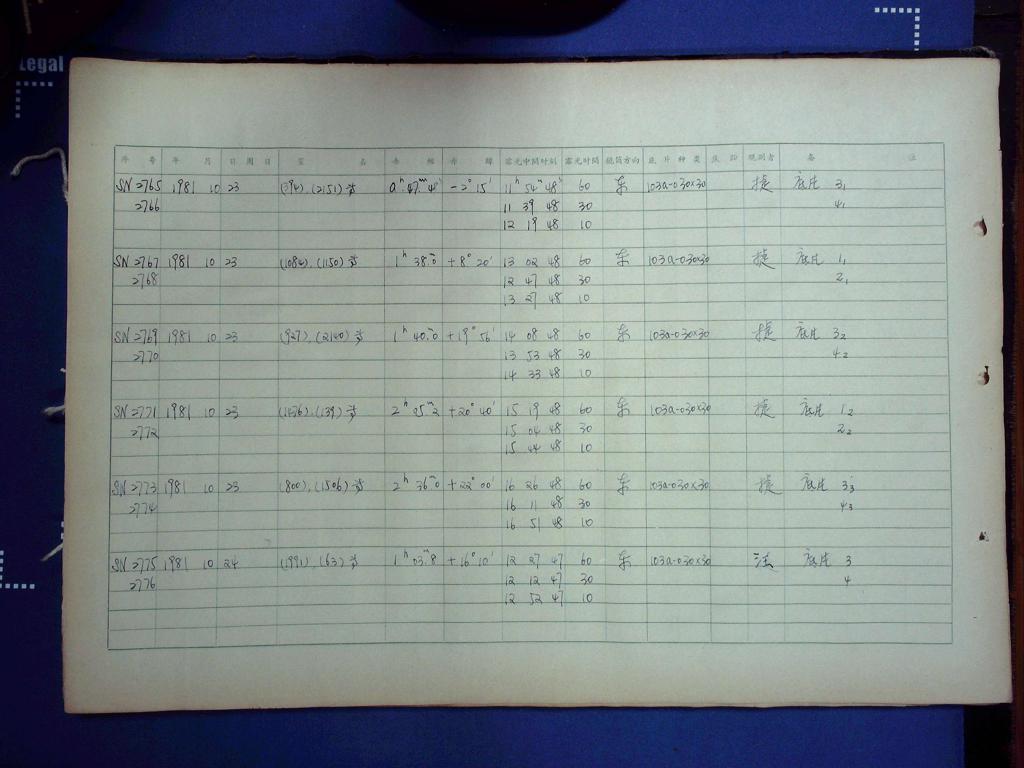 Legal
序 号 年 月 日 周日 星 名 赤 經 赤 緯 露光中間时刻 露光时間 鏡筒方向 底片种类 底 觀測者 备 注
SN 2765 1981 10 23 (394), (2151) 等 0ʰ 47.ᵐ4 −2° 15′ 11ʰ 54ᵐ 48ˢ 60 东 103a-O 30×30 捷 底片 3₁
2766 11 39 48 30 4₁
12 19 48 10
SN 2767 1981 10 23 (1084), (1150) 等 1ʰ 38.ᵐ0 +8° 20′ 13 02 48 60 东 103a-O 30×30 捷 底片 1₁
2768 12 47 48 30 2₁
13 27 48 10
SN 2769 1981 10 23 (927), (2140) 等 1ʰ 40.ᵐ0 +19° 56′ 14 08 48 60 东 103a-O 30×30 捷 底片 3₂
2770 13 53 48 30 4₂
14 33 48 10
SN 2771 1981 10 23 (1476), (139) 等 2ʰ 05.ᵐ2 +20° 40′ 15 19 48 60 东 103a-O 30×30 捷 底片 1₂
2772 15 04 48 30 2₂
15 44 48 10
SN 2773 1981 10 23 (800), (1506) 等 2ʰ 36.ᵐ0 +22° 00′ 16 26 48 60 东 103a-O 30×30 捷 底片 3₃
2774 16 11 48 30 4₃
16 51 48 10
SN 2775 1981 10 24 (1991), (63) 等 1ʰ 03.ᵐ8 +16° 10′ 12 27 47 60 东 103a-O 30×30 底片 3
2776 12 12 47 30 4
12 52 47 10